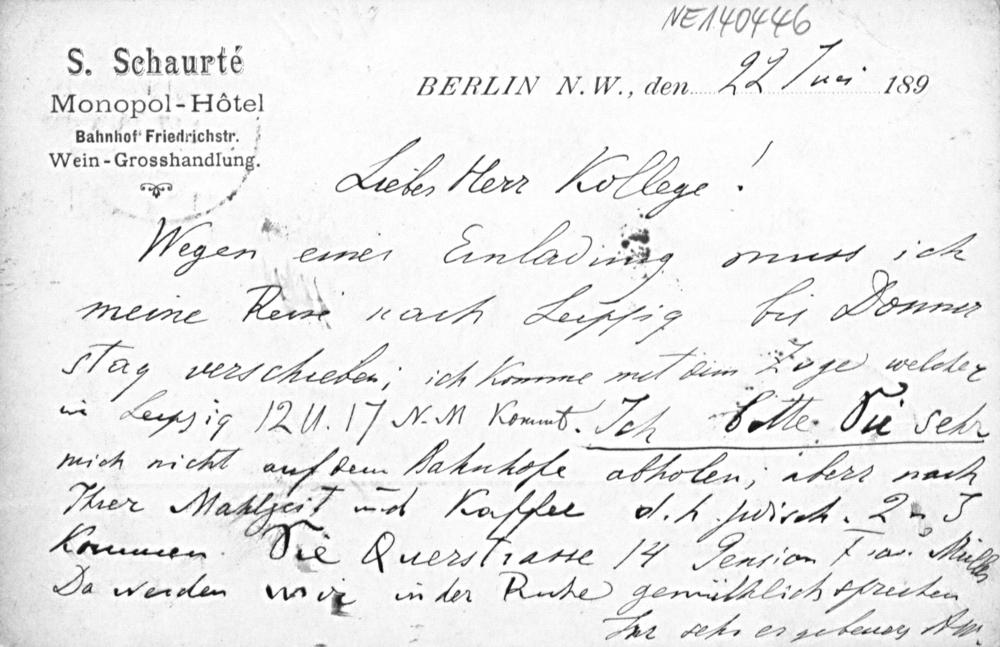 NE140446
S. Schaurté
Monopol-Hôtel
Bahnhof Friedrichstr.
Wein-Grosshandlung.
BERLIN N.W., den 22 Juni 189
Lieber Herr Kollege!
Wegen einer Einladung muss ich
meine Reise nach Leipzig bis Donner
stag verschieben; ich komme mit dem Zuge welcher
in Leipzig 12 U. 17 N.M kommt. Ich bitte Sie sehr
mich nicht auf dem Bahnhofe abholen, aber nach
Ihrer Mahlzeit und Kaffee d.h. zwisch. 2 u 3
kommen Sie Querstrasse 14 Pension
Da werden wir in der Ruhe gemüthlich sprechen
Ihr sehr ergebener